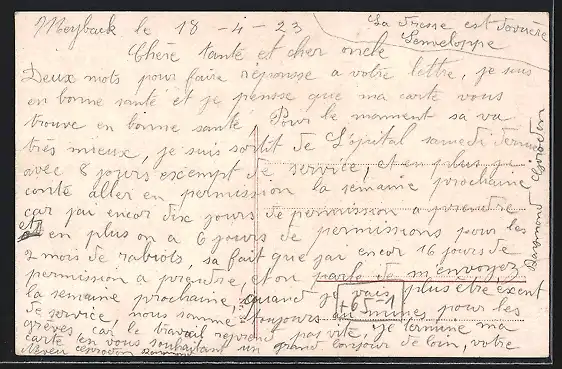 Meyback le 18 - 4 - 23
La dresse est deriere
Lenveloppe
Chère tante et cher oncle
Deux mots pour faire réponsse a votre lettre, je suis
en bonne santé et je pensse que ma carte vous
trouve en bonne santé, Pour le moment sa va
très mieux, je suis sortit de L'ôpital samedi dernier
avec 8 jours exempt de service, et en plus je
conte aller en permission la semaine prochaine
car j'ai encor dix jours de permission a prendre
et en plus on a 6 jours de permissions pour les
2 mois de rabiots, sa fait que j'ai encor 16 jours de
permission a prendre, et on parle de m'envoyez
la semaine prochaine, quand je vais plus être exent
de service, nous somme toujours au mines pour les
grèves, car le travail reprend pas vite. Je termine ma
carte en vous souhaitant un grand bonjour de loin, votre
Neveu
+6 = -1